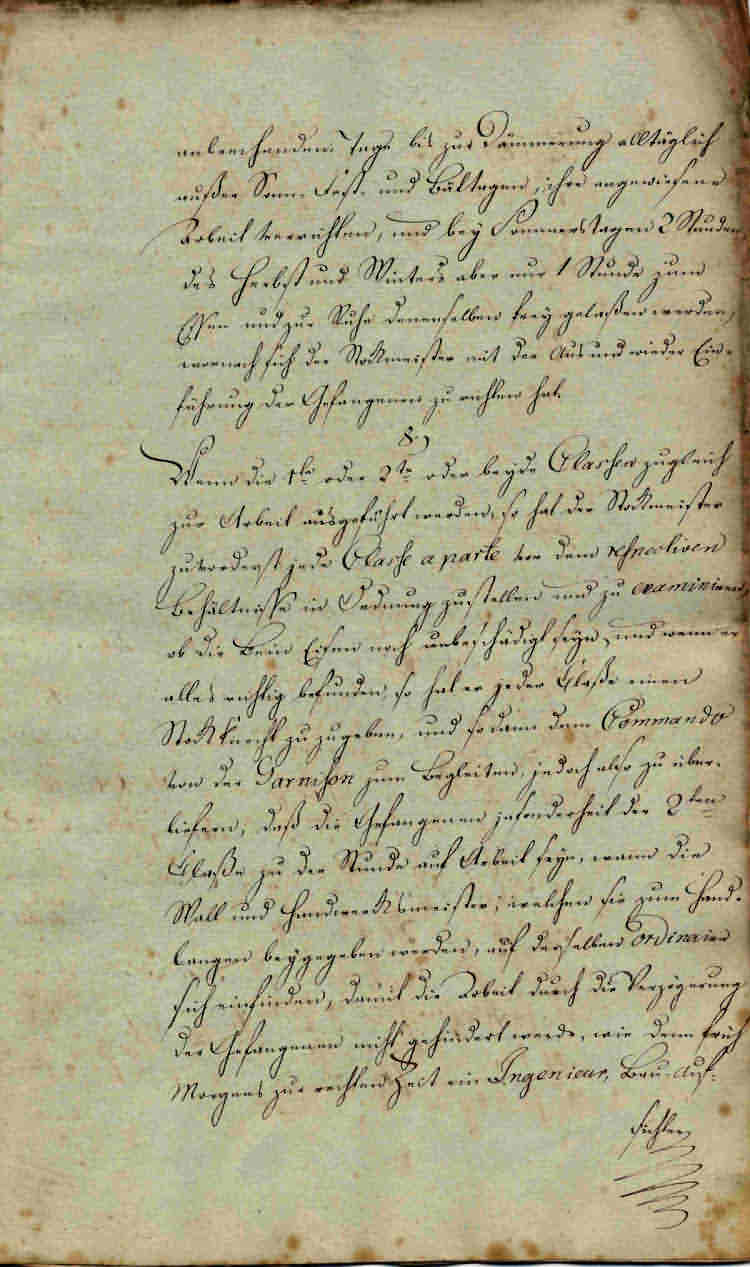 anbrechenden Tage bis zur Dämmerung alltäglich
außer Sonn- Fest- und Bußtagen, ihre angewiesene
Arbeit verrichten, und bey Sommerstagen 2 Stunden,
des Herbst und Winters aber nur 1 Stunde zum
Essen und zur Ruhe denenselben frey gelaßen werden,
wornach sich der Stockmeister mit der Aus und wieder Ein-
führung der Gefangenen zu richten hat.
8.)
Wenn die 1te oder 2te oder beyde Classen zugleich
zur Arbeit ausgeführt werden, so hat der Stockmeister
zuvorderst jede Classe a parte vor dem respectiven
Behältnisse in Ordnung zustellen und zu examiniren,
ob die Bein Eisen noch unbeschädigt seyn, und wenn er
alles richtig befunden, so hat er jeder Claße einen
Stockknecht zu zugeben, und sodann dem Commando
von der Garnison zum Begleiten, jedoch also zu über-
liefern, daß die Gefangenen insonderheit der 2ten
Claße zu der Stunde auf Arbeit seyn, wann die
Wall und Handwerksmeister, welchen sie zum Hand-
langen beygegeben werden, auf derselben ordinaire
sich einfinden, damit die Arbeit durch die Verzögerung
der Gefangenen nicht gehindert werde, wie denn früh
Morgens zur rechten Zeit ein Ingenieur, Bau-Auf-
seher